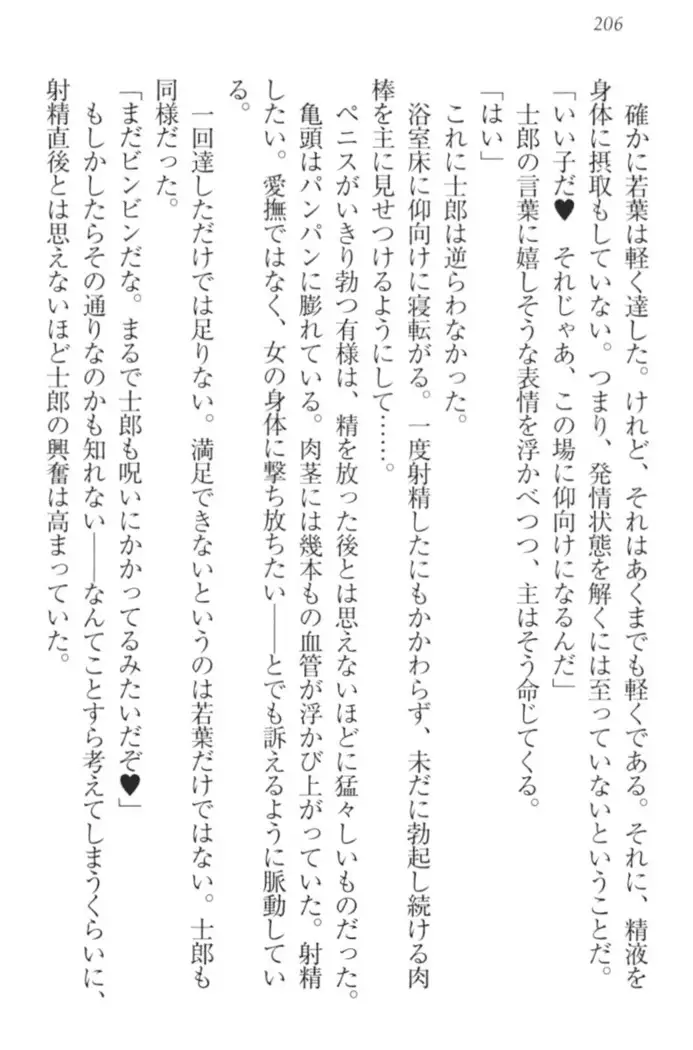 206
確かに若葉は軽く達した。けれど、それはあくまでも軽くである。それに、精液を
身体に摂取もしていない。つまり、発情状態を解くには至っていないということだ。
「いい子だ♥　それじゃあ、この場に仰向けになるんだ」
士郎の言葉に嬉しそうな表情を浮かべつつ、主はそう命じてくる。
「はい」
これに士郎は逆らわなかった。
浴室床に仰向けに寝転がる。一度射精したにもかかわらず、未だに勃起し続ける肉
棒を主に見せつけるようにして……。
ペニスがいきり勃つ有様は、精を放った後とは思えないほどに猛々しいものだった。
亀頭はパンパンに膨れている。肉茎には幾本もの血管が浮かび上がっていた。射精
したい。愛撫ではなく、女の身体に撃ち放ちたい――とでも訴えるように脈動してい
る。
一回達しただけでは足りない。満足できないというのは若葉だけではない。士郎も
同様だった。
「まだビンビンだな。まるで士郎も呪いにかかってるみたいだぞ♥」
もしかしたらその通りなのかも知れない――なんてことすら考えてしまうくらいに、
射精直後とは思えないほど士郎の興奮は高まっていた。